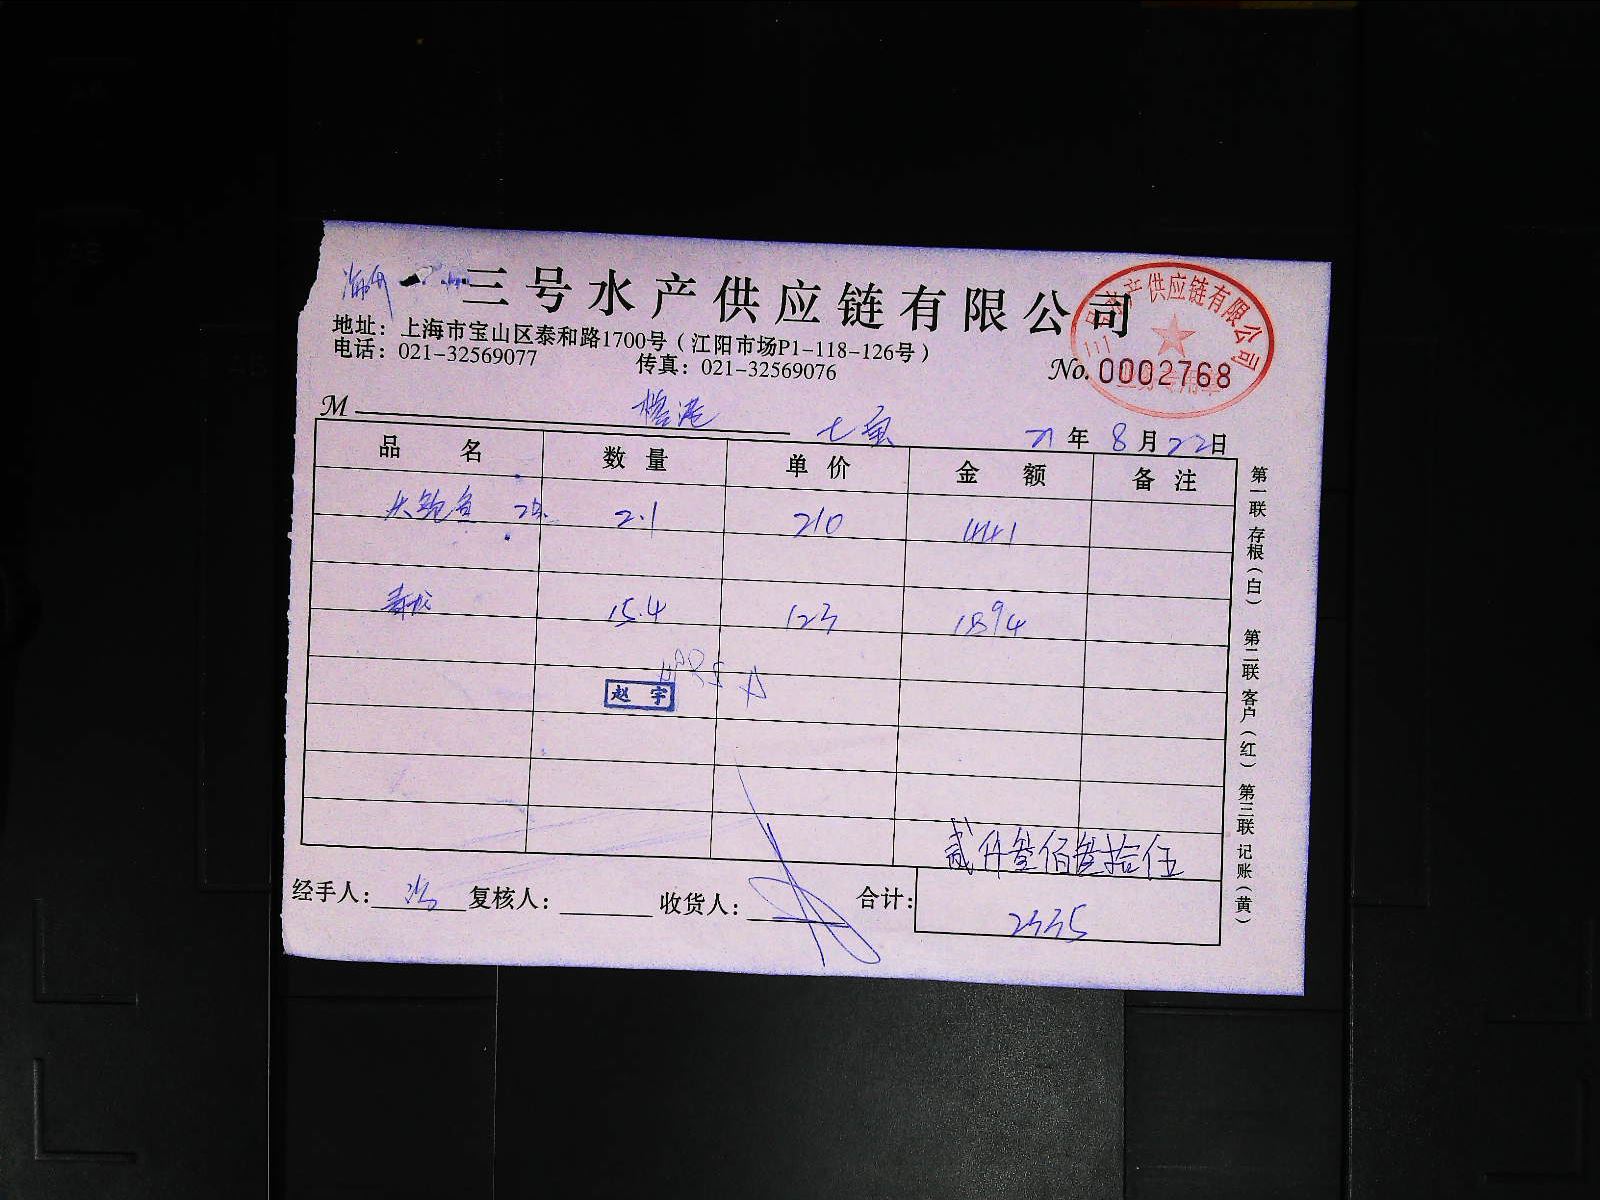 三号水产供应链有限公司
地址：上海市宝山区泰和路1700号（江阳市场P1-118-126号）
电话：021-32569077 传真：021-32569076
No. 0002768
M 榕港 七宝 21年8月22日
品名 数量 单价 金额 备注
大鲍鱼 2.1 210 441
青龙 15.4 123 1894
赵宇
贰仟叁佰叁拾伍
经手人： 复核人： 收货人： 合计： 2335
第一联 存根（白） 第二联 客户（红） 第三联 记账（黄）